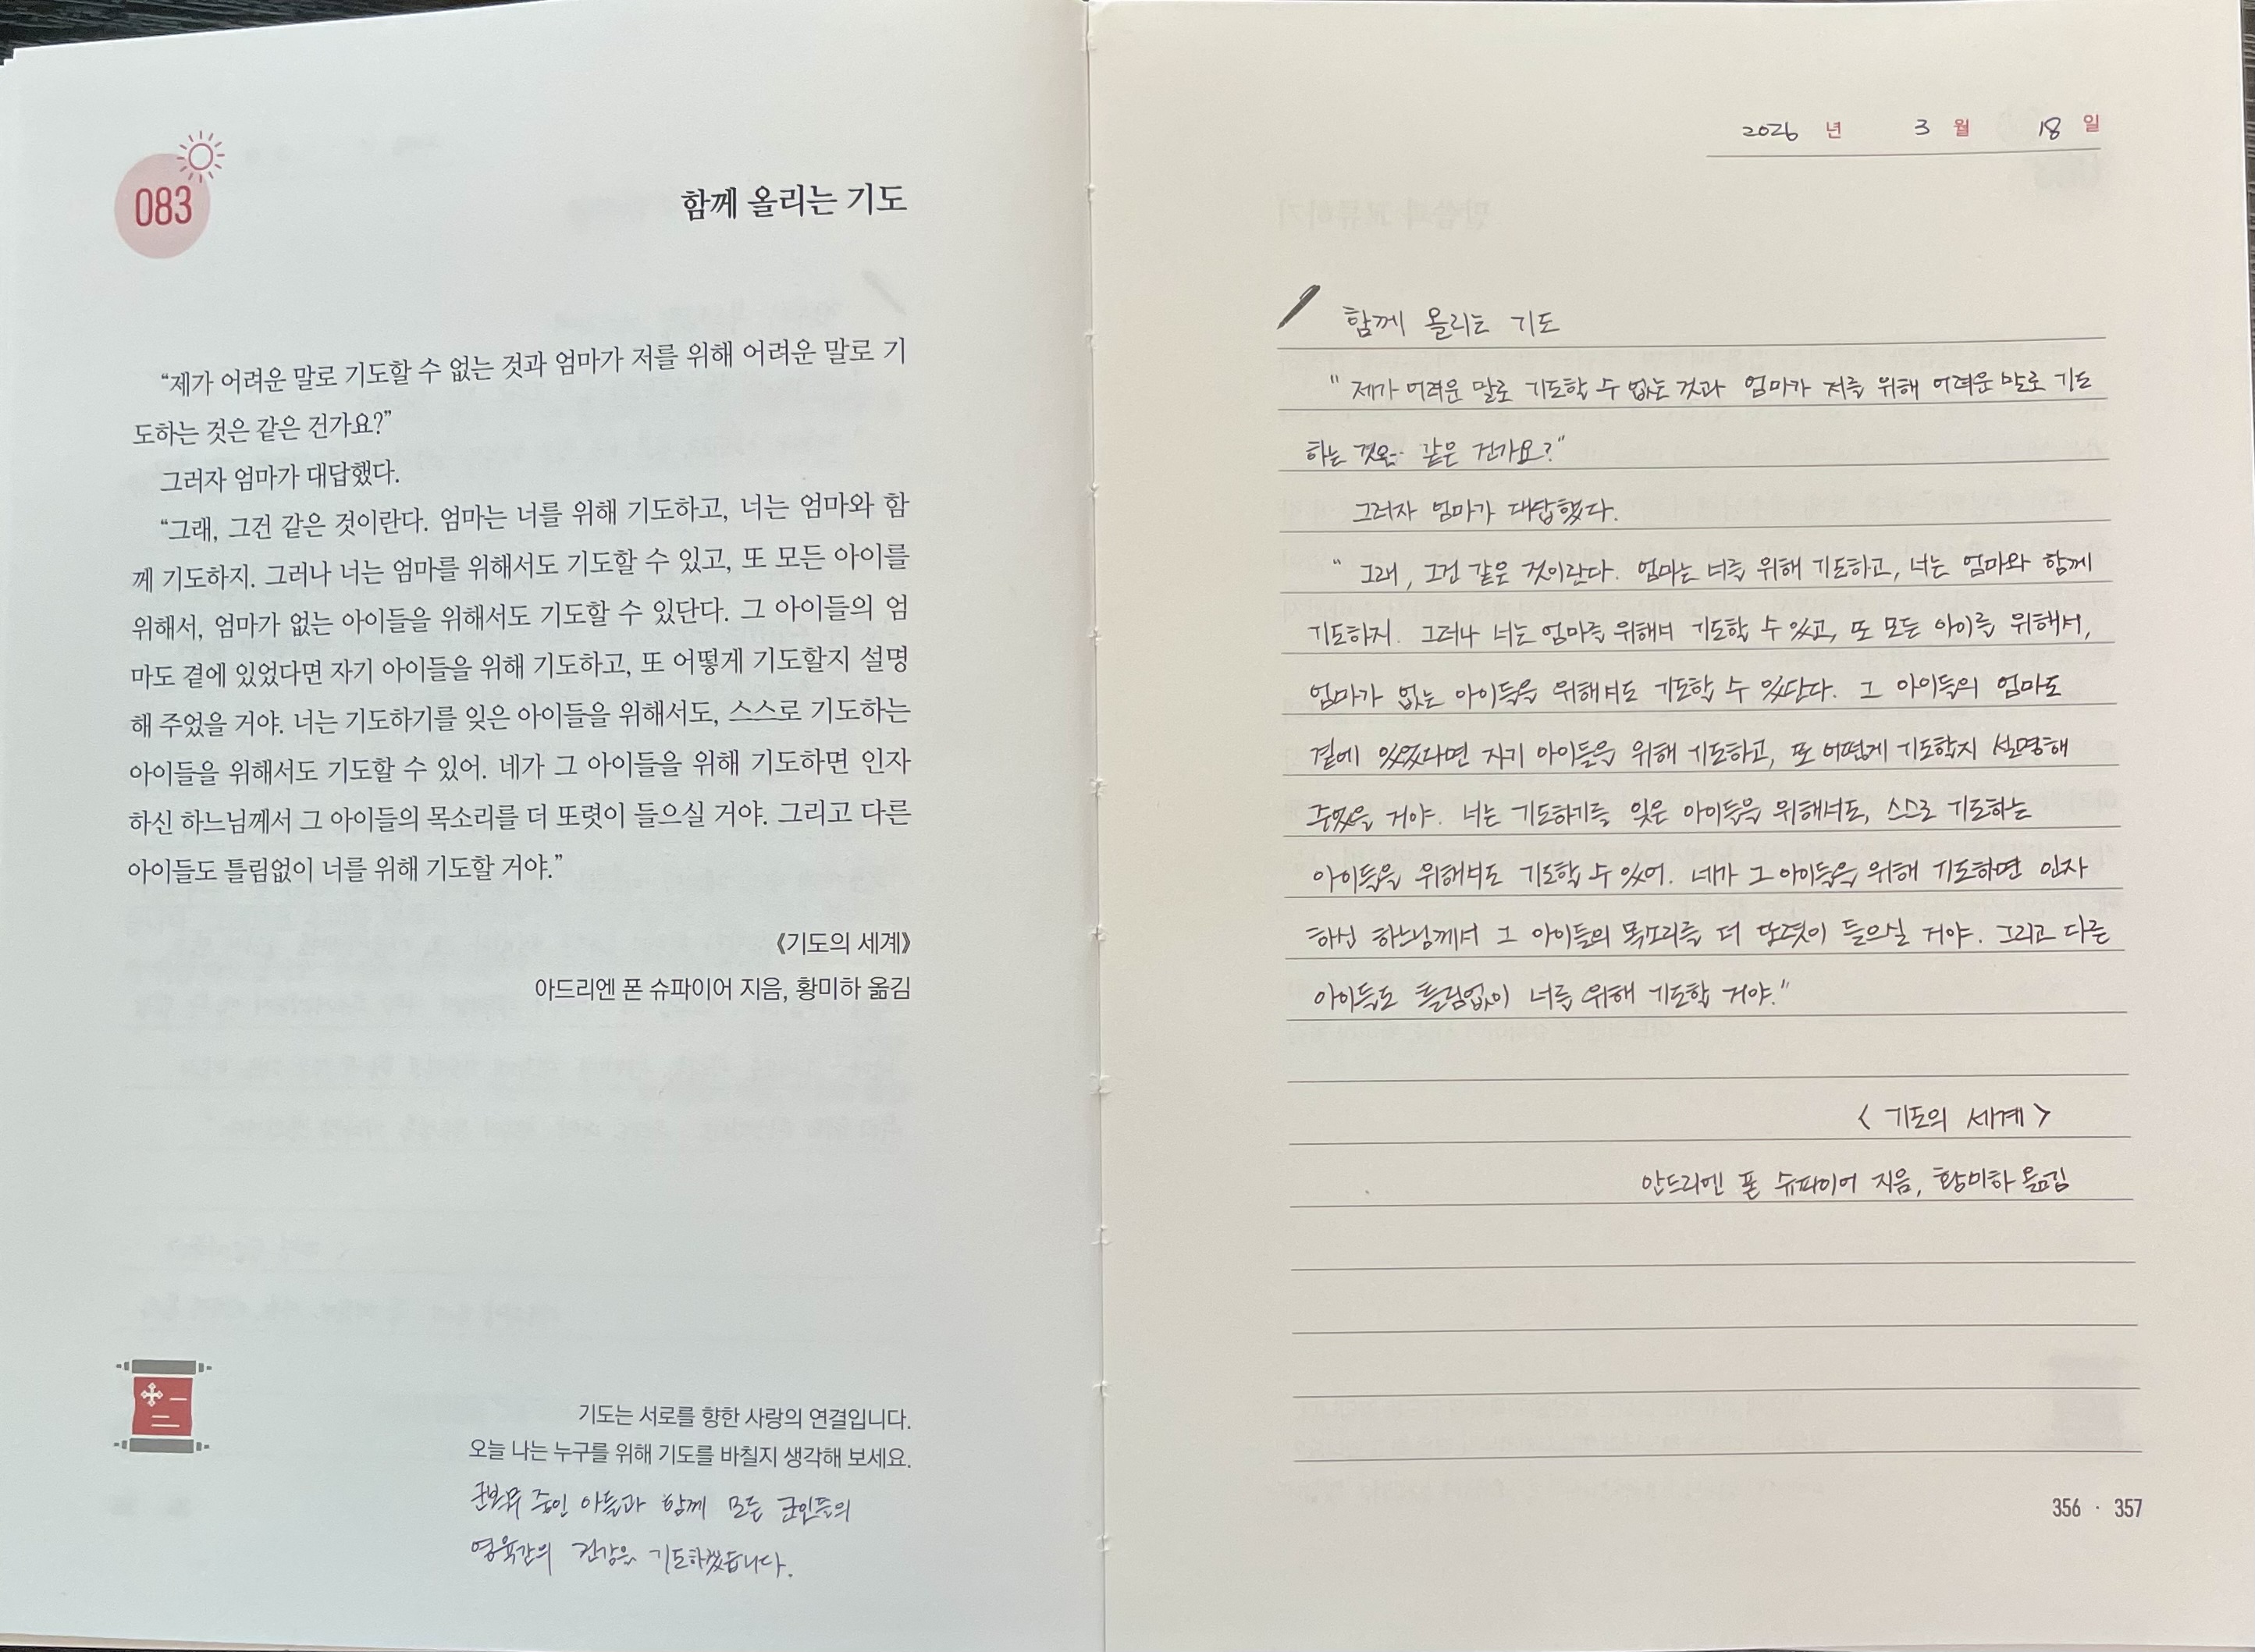 083
함께 올리는 기도
“제가 어려운 말로 기도할 수 없는 것과 엄마가 저를 위해 어려운 말로 기
도하는 것은 같은 건가요?”
그러자 엄마가 대답했다.
“그래, 그건 같은 것이란다. 엄마는 너를 위해 기도하고, 너는 엄마와 함
께 기도하지. 그러나 너는 엄마를 위해서도 기도할 수 있고, 또 모든 아이를
위해서, 엄마가 없는 아이들을 위해서도 기도할 수 있단다. 그 아이들의 엄
마도 곁에 있었다면 자기 아이들을 위해 기도하고, 또 어떻게 기도할지 설명
해 주었을 거야. 너는 기도하기를 잊은 아이들을 위해서도, 스스로 기도하는
아이들을 위해서도 기도할 수 있어. 네가 그 아이들을 위해 기도하면 인자
하신 하느님께서 그 아이들의 목소리를 더 또렷이 들으실 거야. 그리고 다른
아이들도 틀림없이 너를 위해 기도할 거야.”
《기도의 세계》
아드리엔 폰 슈파이어 지음, 황미하 옮김
기도는 서로를 향한 사랑의 연결입니다.
오늘 나는 누구를 위해 기도를 바칠지 생각해 보세요.
군복무 중인 아들과 함께 모든 군인들의
영육간의 건강을 기도하겠습니다.
2026 년 3 월 18 일
함께 올리는 기도
" 제가 어려운 말로 기도할 수 없는 것과 엄마가 저를 위해 어려운 말로 기도
하는 것은 같은 건가요?"
그러자 엄마가 대답했다.
" 그래, 그건 같은 것이란다. 엄마는 너를 위해 기도하고, 너는 엄마와 함께
기도하지. 그러나 너는 엄마를 위해서 기도할 수 있고, 또 모든 아이를 위해서,
엄마가 없는 아이들을 위해서도 기도할 수 있단다. 그 아이들의 엄마도
곁에 있었다면 자기 아이들을 위해 기도하고, 또 어떻게 기도할지 설명해
주었을 거야. 너는 기도하기를 잊은 아이들을 위해서도, 스스로 기도하는
아이들을 위해서도 기도할 수 있어. 네가 그 아이들을 위해 기도하면 인자
하신 하느님께서 그 아이들의 목소리를 더 들으실 거야. 그리고 다른
아이들도 틀림없이 너를 위해 기도할 거야."
< 기도의 세계 >
안드리엔 폰 슈파이어 지음, 황미하 옮김
356 · 357